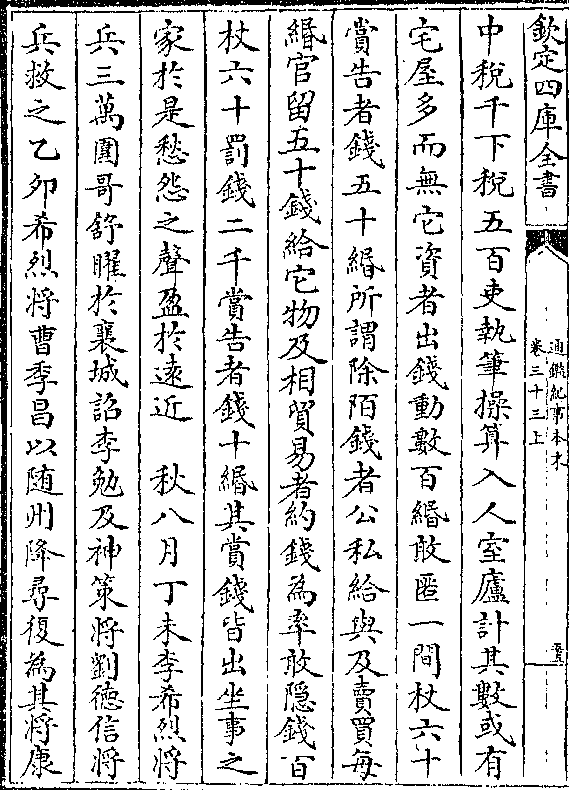 欽定四庫全書
通鑑紀事本末
卷三十三上
中稅千下稅五百吏執筆操算入人室廬計其數或有
宅屋多而無它資者出錢動數百緡敢匿一間杖六十
賞告者錢五十緡所謂除陌錢者公私給與及賣買每
緡官留五十錢給它物及相貿易者約錢為率敢隐錢百
杖六十罰錢二千賞告者錢十緡其賞錢皆出坐事之
家於是愁怨之聲盈於遠近　秋八月丁未李希烈将
兵三萬圍哥舒曜於襄城詔李勉及神策将劉徳信将
兵救之乙卯希烈将曹季昌以随州降尋復為其将康